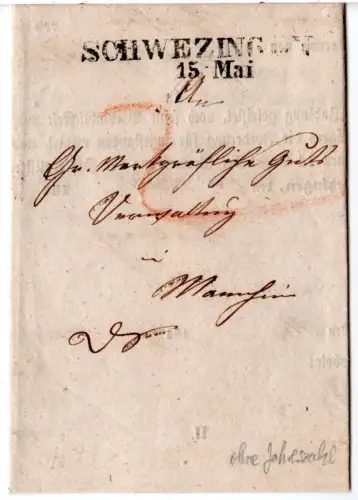 SCHWEZINGEN
15. Mai
An
Gr. Markgräfliche Guts
Verwaltung
in
Mannheim
ohne Jahreszahl